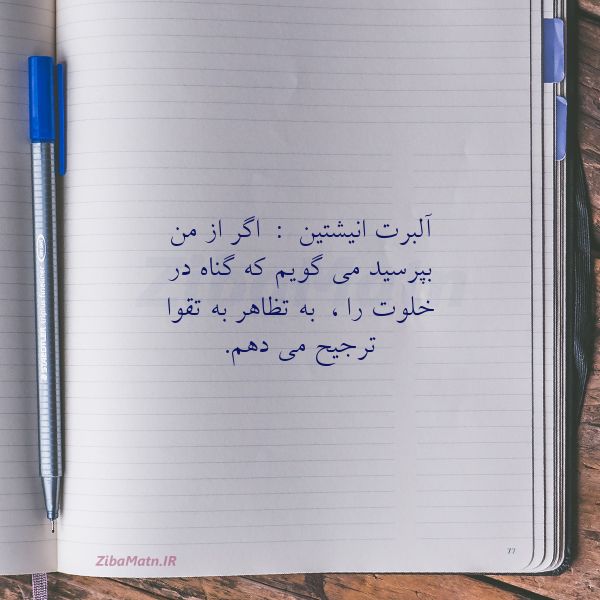 آلبرت انیشتین : اگر از من
بپرسید می گویم که گناه در
خلوت را ، به تظاهر به تقوا
ترجیح می دهم.
ZibaMatn.IR
77